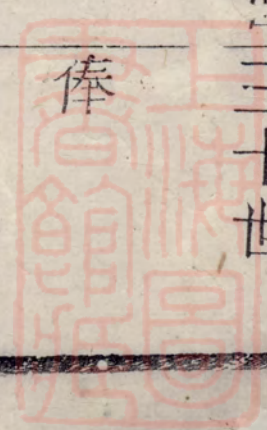 三十世
俸
上海圖書館藏